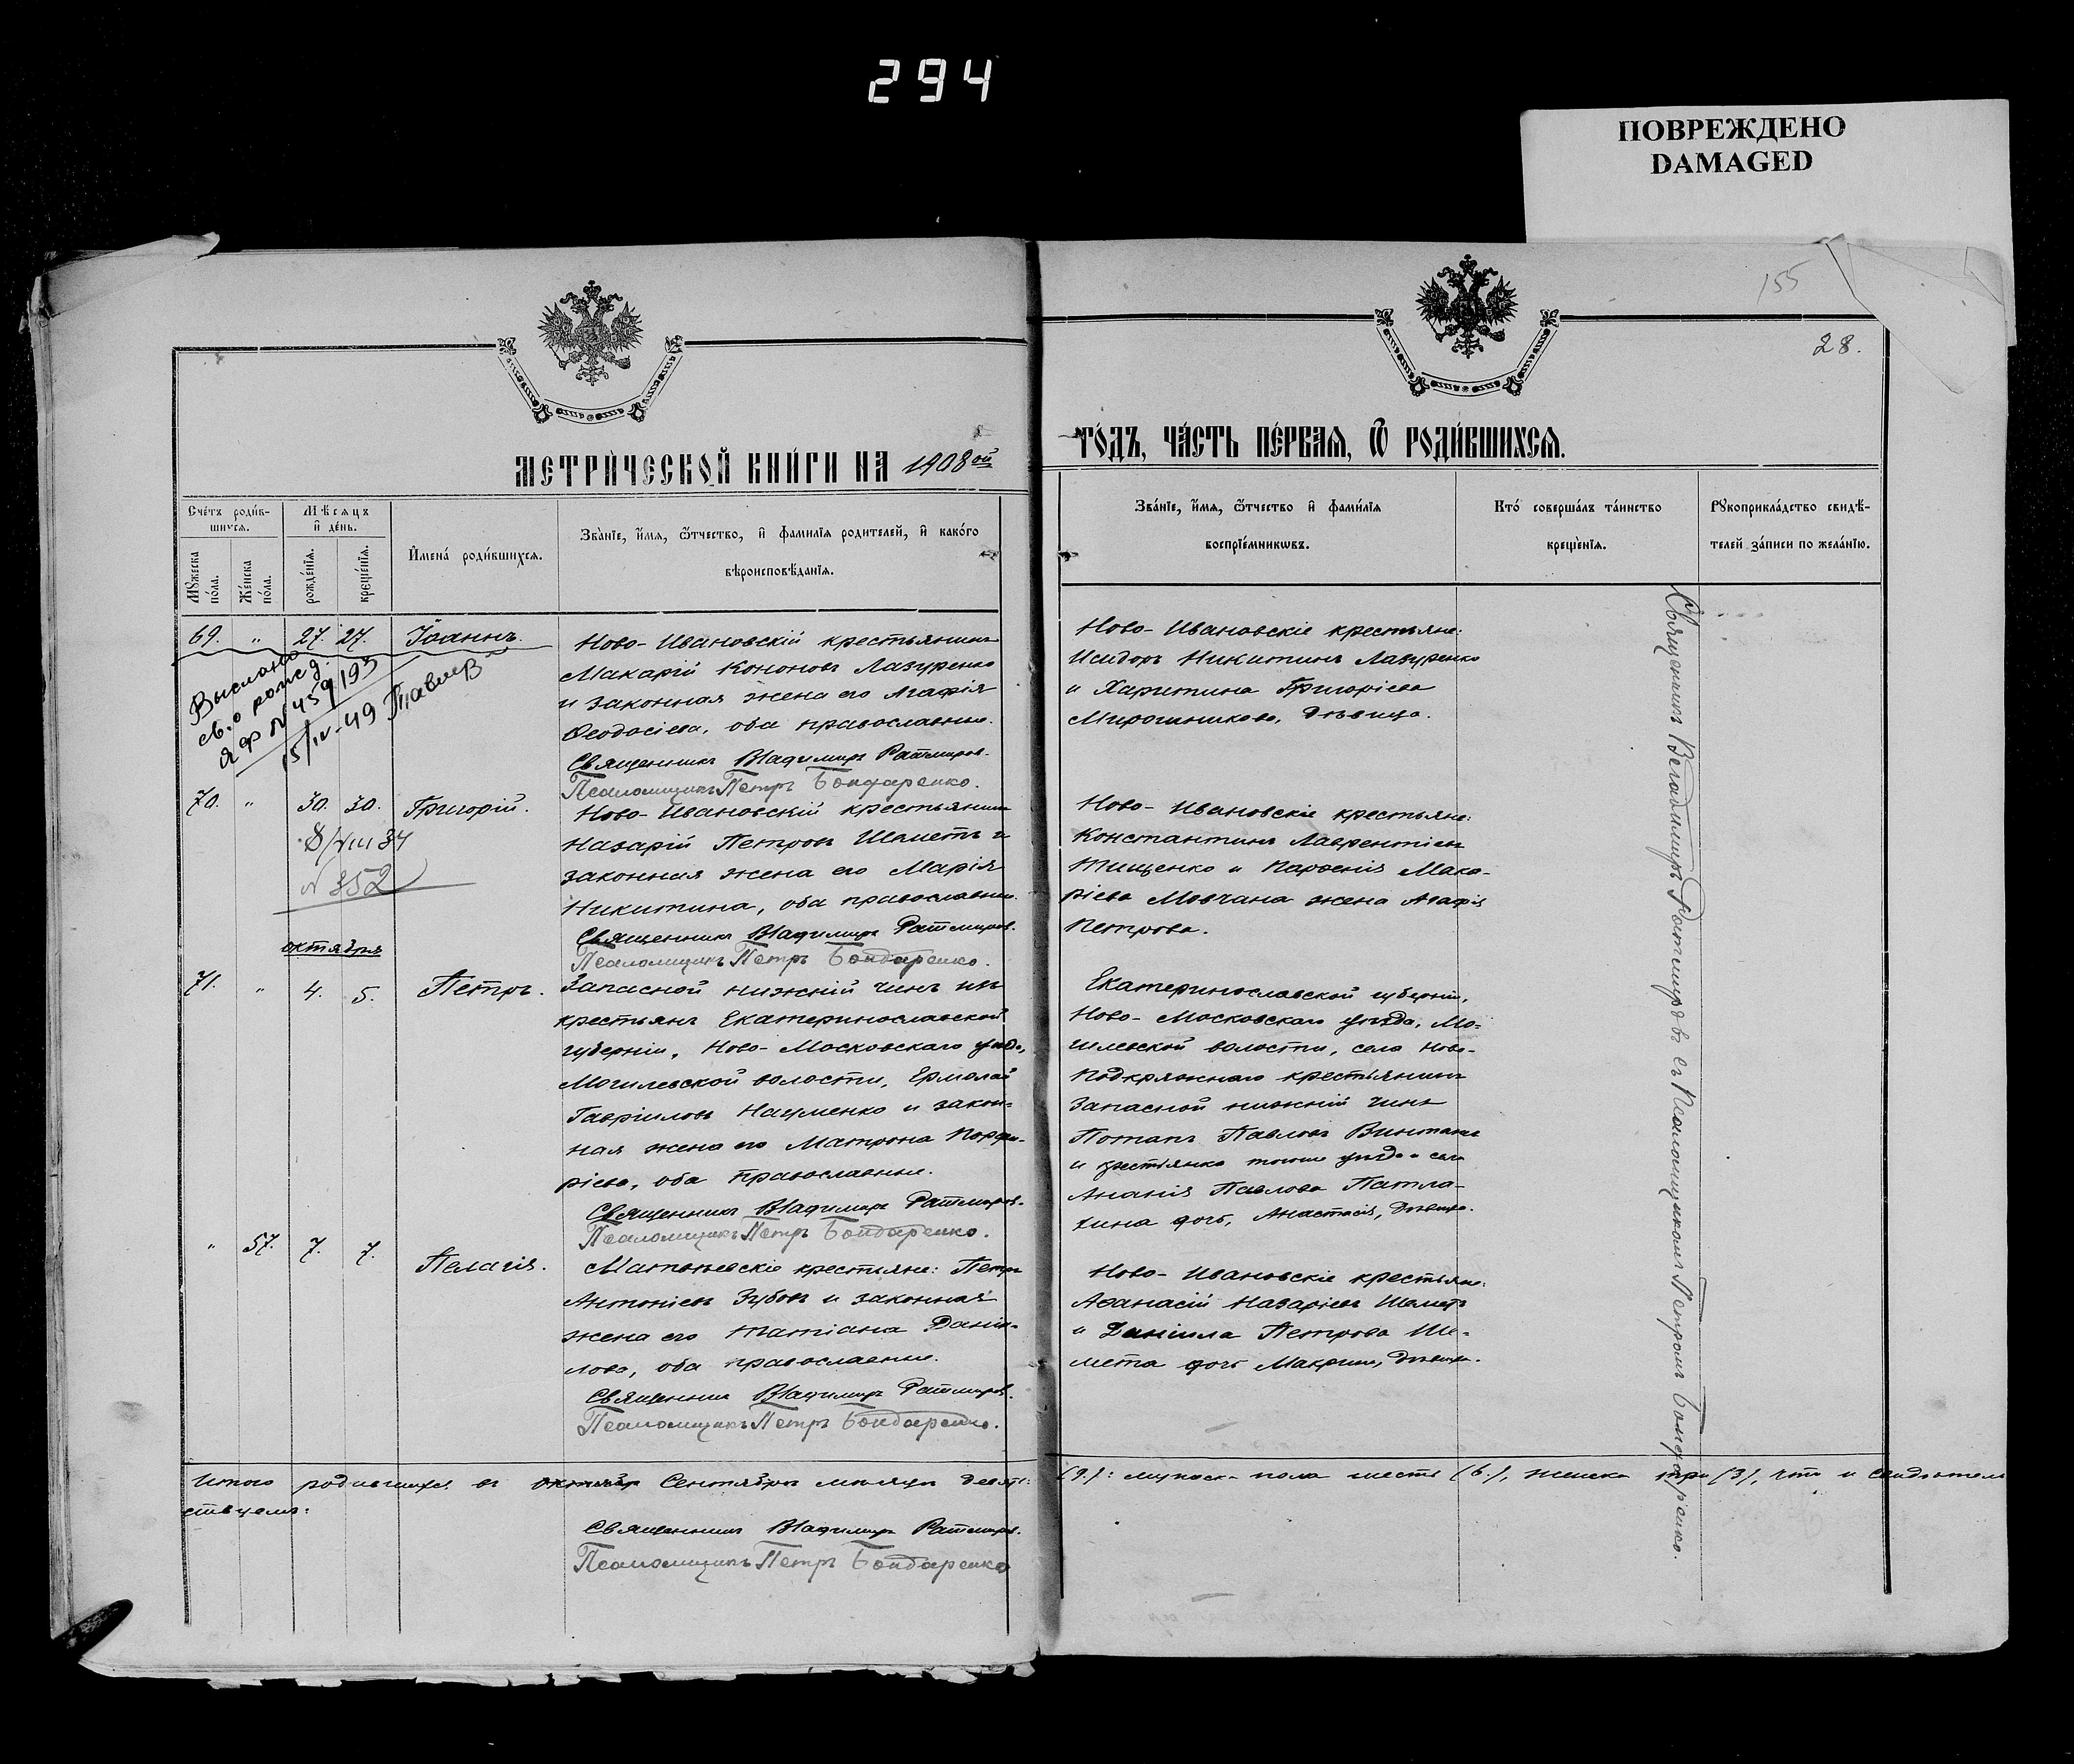 294
ПОВРЕЖДЕНО
DAMAGED
155
28.
МЕТРИ́ЧЕСКОЙ КНИ́ГИ НА 1908ой
ГО́ДЪ, ЧА́СТЬ ПЕ́РВАѦ, Ѿ РОДИ́ВШИХСѦ.
Сче́тъ роди́в-
шихсѧ.
Мѣ́сѧцъ
и҆ де́нь.
Мꙋ́жеска
по́ла.
Же́нска
по́ла.
рожде́нїѧ.
креще́нїѧ.
И҆мена́ роди́вшихсѧ.
Зва́нїе, и҆́мѧ, ѻ҆́тчество, и҆ фами́лїѧ роди́телей, и҆ како́го
вѣроисповѣ́данїѧ.
Зва́нїе, и҆́мѧ, ѻ҆́тчество и҆ фами́лїѧ
воспрїе́мникѡвъ.
Кто́ соверша́лъ та́инство
креще́нїѧ.
Рꙋкоприкла́дство свидѣ́-
телей за́писи по жела́нїю.
69. " 27. 27. Іоаннъ.
Ново-Ивановскій крестьянинъ
Макарій Кононовъ Лазуренко
и законная жена его Агафія
Ѳеодосіева, оба православные.
Священникъ Владимиръ Ратмировъ.
Псаломщикъ Петръ Бондаренко.
Ново-Ивановскіе крестьяне:
Исидоръ Никитинъ Лазуренко
и Харитина Григоріева
Мирошникова, дѣвица.
Выслано
св. о рожд.
ЯФ № 459193
15/IV-49
70. " 30. 30. Григорій.
8/VIII 34
№ 352
Ново-Ивановскій крестьянинъ
Назарій Петровъ Шеметъ и
законная жена его Марія
Никитина, оба православные.
Священникъ Владимиръ Ратмировъ.
Псаломщикъ Петръ Бондаренко.
Ново-Ивановскіе крестьяне:
Константинъ Лаврентіевъ
Тищенко и Парѳенія Мака-
ріева Мовчана жена Агафія
Петрова.
октября
71. " 4. 5. Петръ.
Запасной нижній чинъ изъ
крестьянъ Екатеринославской
губерніи, Ново-Московскаго уѣзда,
Могилевской волости, Ермолай
Гавріиловъ Науменко и закон-
ная жена его Матрона Порфи-
ріева, оба православные.
Священникъ Владимиръ Ратмировъ.
Псаломщикъ Петръ Бондаренко.
Екатеринославской губерніи,
Ново-Московскаго уѣзда, Мо-
гилевской волости, села Ново-
Подкряжнаго крестьянинъ
запасной нижній чинъ
Потапъ Павловъ
и крестьянка того же уѣзда и села
Ананія Павлова Патла-
хина дочь, Анастасія, дѣвица.
" 57. 7. 7. Пелагія.
Матвѣевскіе крестьяне: Петръ
Антоніевъ Зубовъ и законная
жена его Татіана Даніи-
лова, оба православные.
Священникъ Владимиръ Ратмировъ.
Псаломщикъ Петръ Бондаренко.
Ново-Ивановскіе крестьяне:
Аѳанасій Назаріевъ Шеметъ
и Даніила Петрова Ше-
мета дочь Макрина, дѣвица.
Священникъ Владимиръ Ратмировъ съ Псаломщикомъ Петромъ Бондаренко.
Итого родившихся въ октябрѣ Сентябрѣ мѣсяцѣ девять: (9.): мужеска пола шесть (6.), женска три (3), что и свидѣтель
ствуемъ:
Священникъ Владимиръ Ратмировъ.
Псаломщикъ Петръ Бондаренко